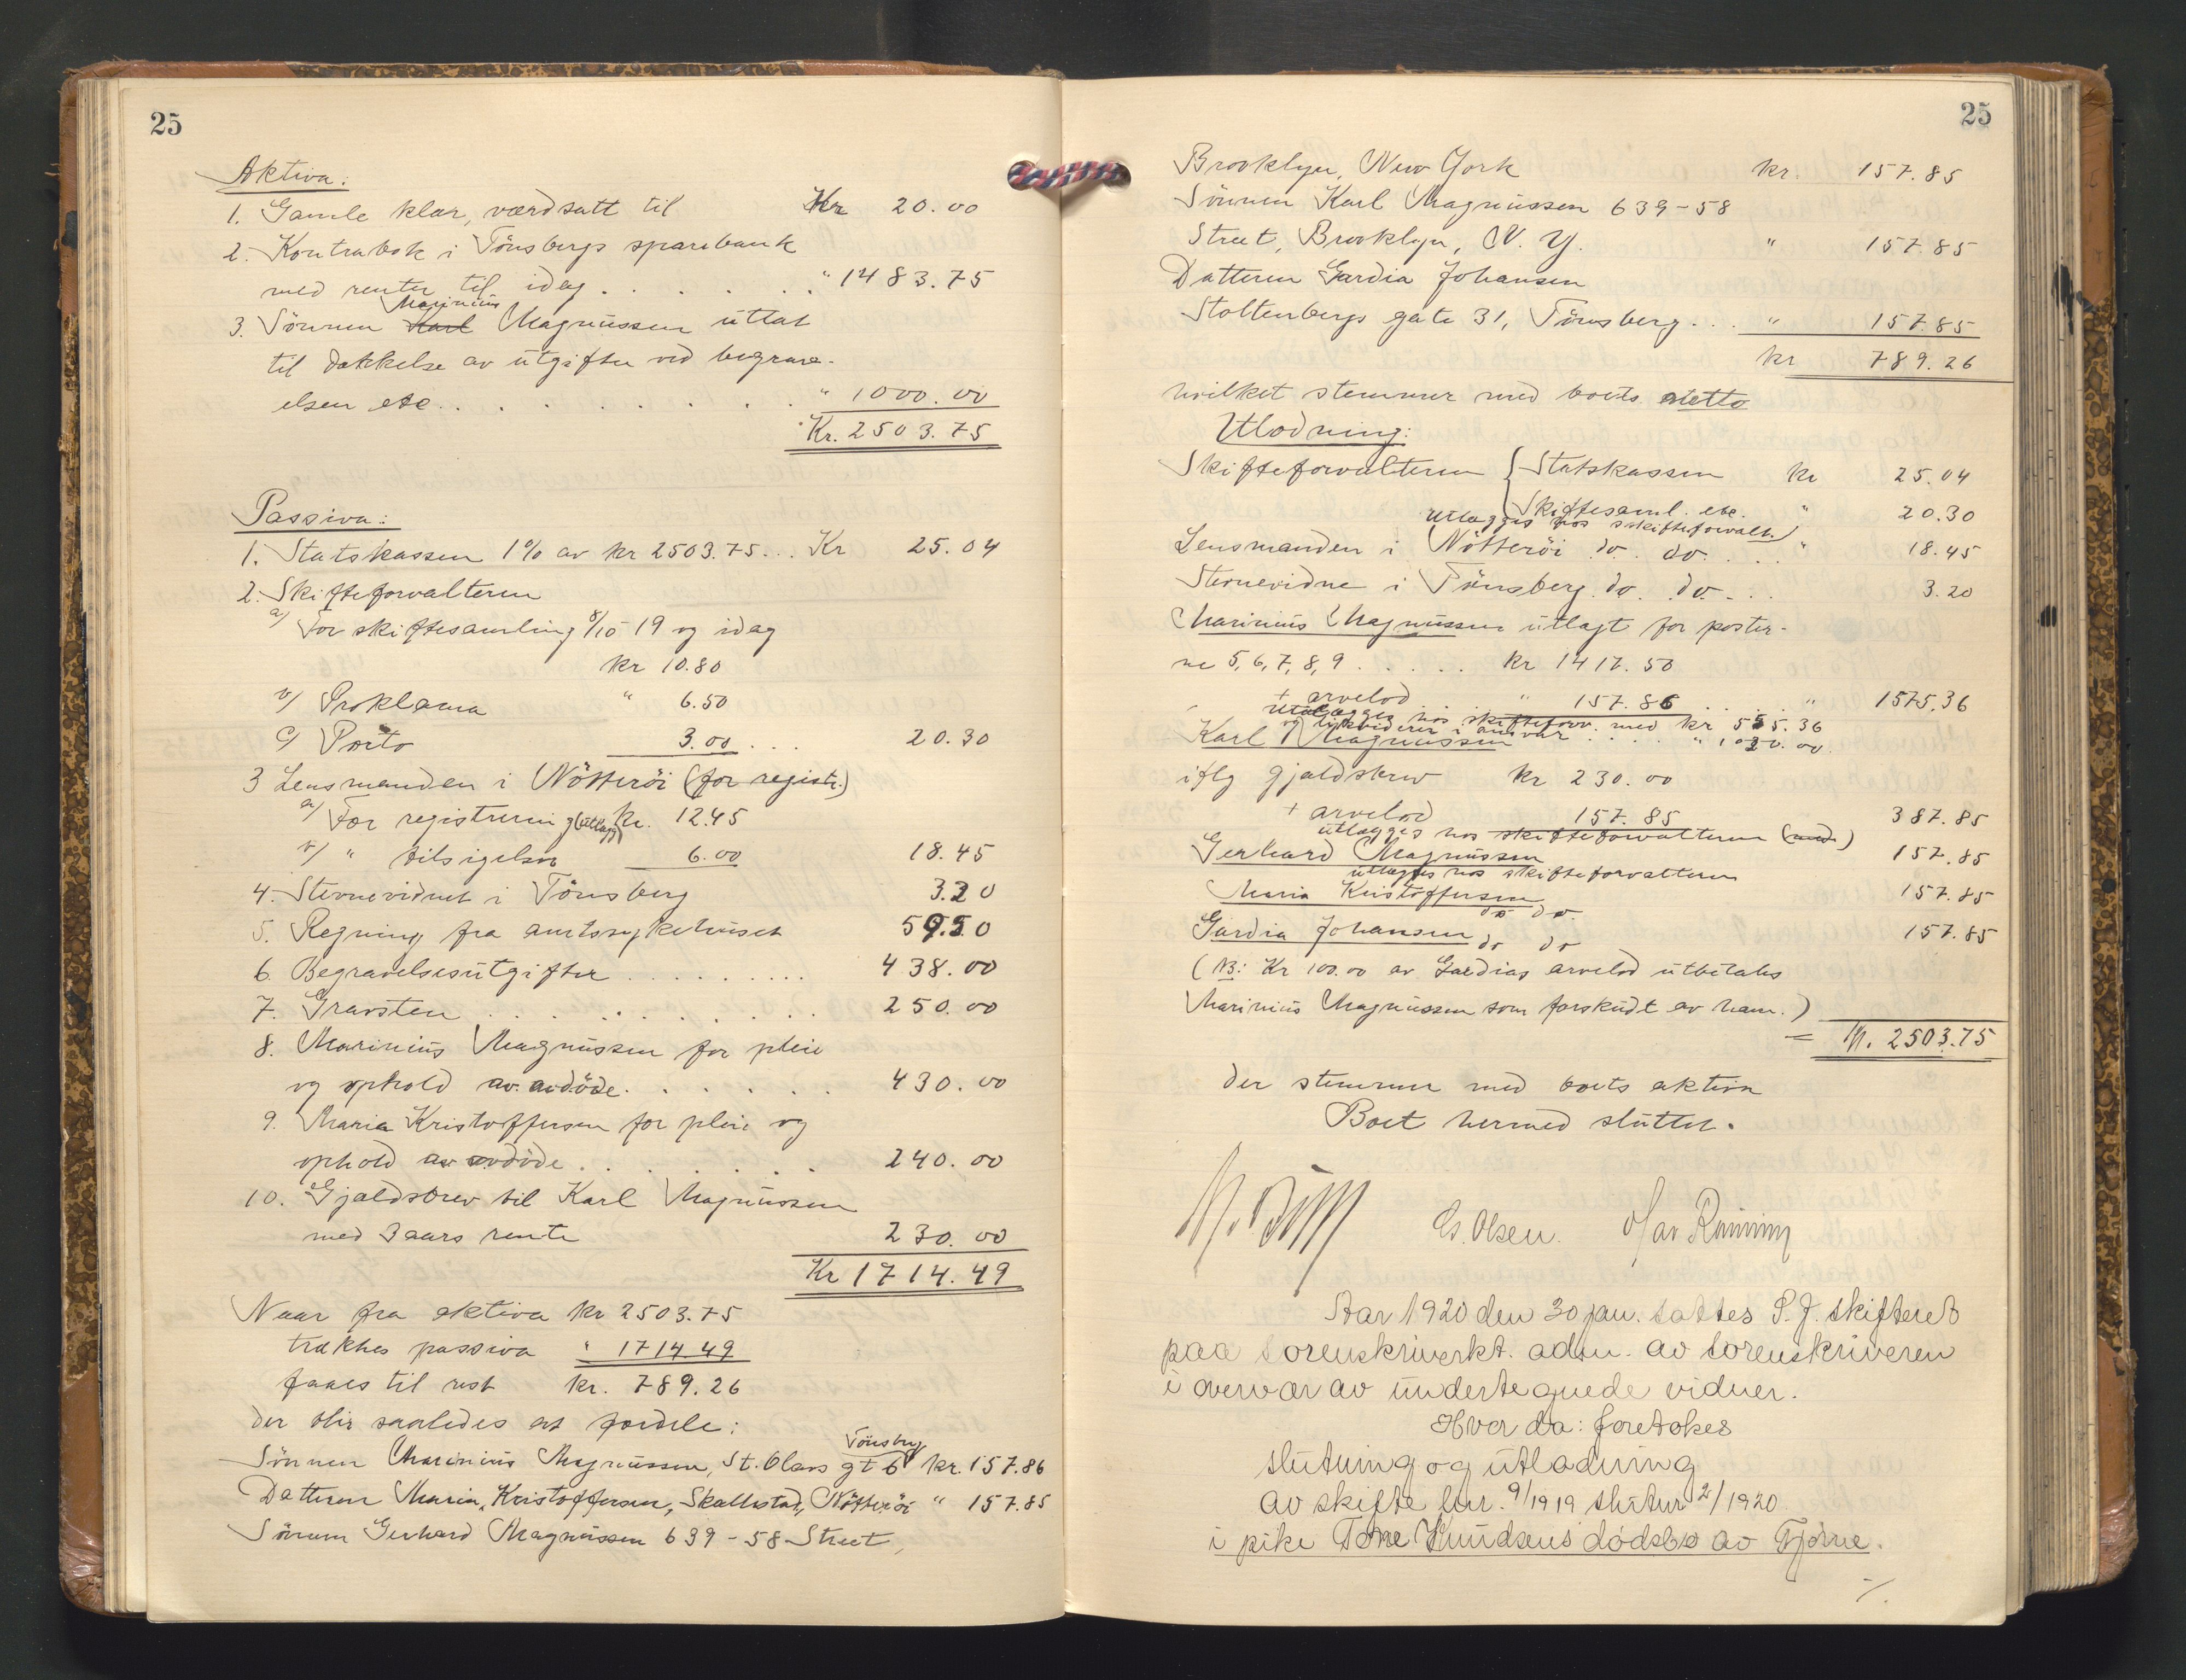 25
Aktiva:
1. Gamle klær, værdsatt til Kr 20.00
2. Kontrabok i Tönsbergs sparebank
med renter til idag. . . . . . " 1483.75
Marinius
3. Sönnen Karl Magnussen uttat
til dækkelse av utgifter ved begrav-
elsen etc. . . . . . . . . " 1000.00
Kr. 2503.75
Passiva:
1. Statskassen 1% av kr 2503.75... Kr 25.04
2. Skifteforvalteren
a/ For skiftesamling 8/10 19 og idag
kr 10.80
b/ Proklama " 6.50
c/ Porto 3.00 . . . 20.30
3 Lensmanden i Nötteröi (for registr.)
a/ For registrering (utlagt) kr. 12.45
b/ " tilsigelse 6.00 18.45
4. Stevnevidnet i Tönsberg 3.20
5. Regning fra amtssykehuset 59.50
6. Begravelsesutgifter . . . . . . . . 438.00
7. Gravsten . . . . . . . . . . 250.00
8. Marinius Magnussen for pleie
og ophold av avdöde. . . . . . . 430.00
9. Maria Kristoffersen for pleie og
ophold av avdöde. . . . . . . . 240.00
10. Gjældsbrev til Karl Magnussen
med 3 aars rente 230.00
Kr 1714.49
Naar fra aktiva kr 2503.75
trækkes passiva " 1714.49
faaes til rest kr. 789.26
der blir saaledes at fordele:
Tönsberg
Sönnen Marinius Magnussen, St. Olavs gt 6 kr. 157.86
Datteren Maria Kristoffersen, Skallestad, Nötteröi " 157.85
Sönnen Gerhard Magnussen 639-58 Street,
25
Brooklyn, New York kr. 157.85
Sönnen Karl Magnussen 639-58
Street, Brooklyn, N.Y. " 157.85
Datteren Gardia Johansen
Stoltenbergs gate 31, Tönsberg... " 157.85
kr 789.26
hvilket stemmer med boets netto
Utlodning:
Skifteforvalteren { Statskassen kr 25.04
Skiftesaml. etc. " 20.30
Utlægges hos skifteforvalt.
Lensmanden i Nötteröi do. do. . . . " 18.45
Stevnevidne i Tönsberg. do. do. . . . 3.20
Marinius Magnussen utlagt for poster-
ne 5, 6, 7, 8, 9 . . . . . kr 1417.50
+ arvelod " 157.86 . . . . " 1575.36
Utlægges hos skifteforv. med kr 555.36
og likviderer i ansvar . . . . " 1020.00
Karl Magnussen
iflg gjældsbrev kr 230.00
+ arvelod 157.85 387.85
utlægges hos skifteforvalteren (med)
Gerhard Magnussen 157.85
utlægges hos skifteforvalteren
Maria Kristoffersen 157.85
do do.
Gardia Johansen do do 157.85
(NB: Kr 100.00 av Gardias arvelod utbetales
Marinius Magnussen som forskudt av ham.)
= kr. 2503.75
der stemmer med boets aktiva
Boet hermed sluttet.
G. Olsen. Olav Rønning
Aar 1920 den 30 jan. sattes S.J. skifteret
paa sorenskriverkt. adm. av sorenskriveren
i overvær av undertegnede vidner.
Hvor da: foretokes
slutning og utlodning
av skifte lnr. 9/1919 slutnr 2/1920
i pike Tone Knudsens dödsbo av Tjöme.